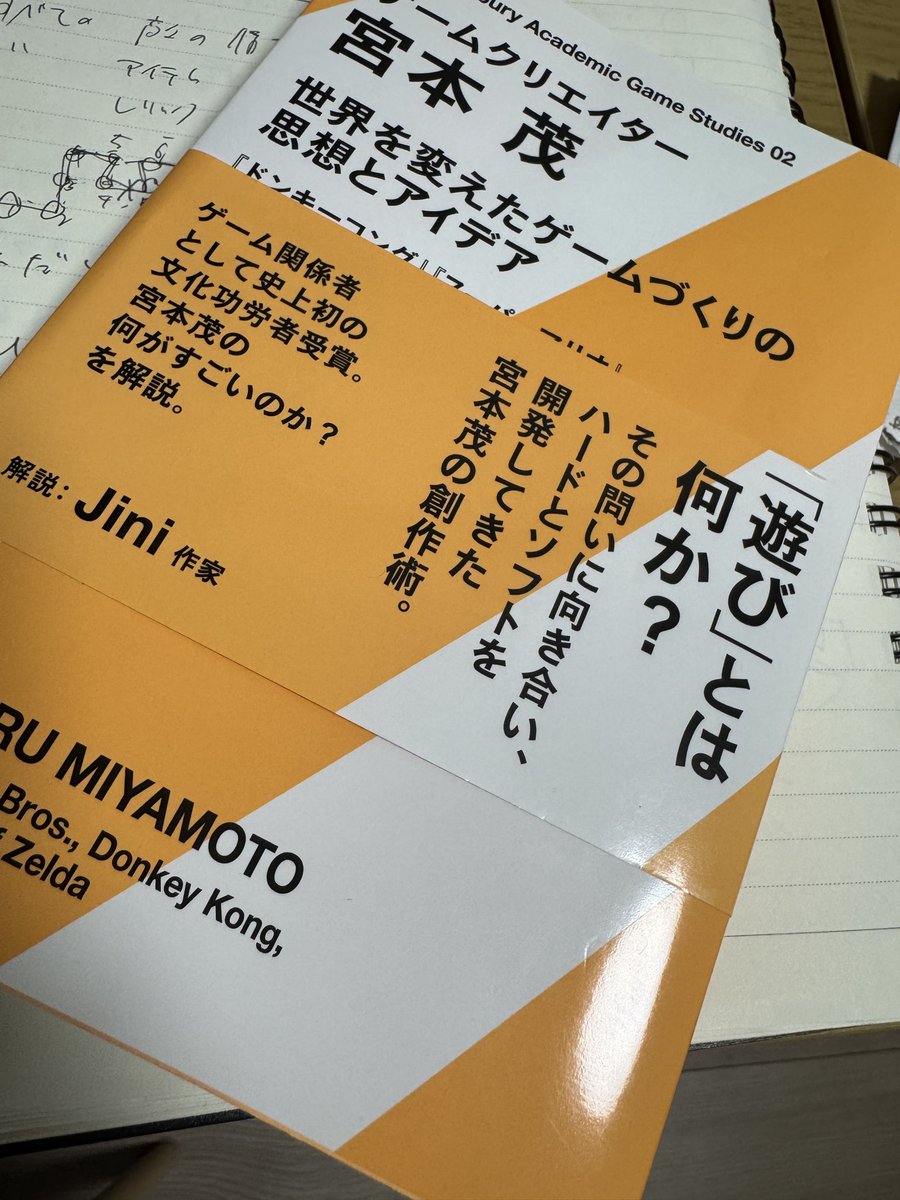 すべての
アイテム
Academic Game Studies 02
ゲームクリエイター
宮本 茂
世界を変えたゲームづくりの
思想とアイデア
『ドンキーコング』『スーパー
「遊び」とは
何か?
その問いに向き合い、
ハードとソフトを
開発してきた
宮本茂の創作術。
ゲーム関係者
として史上初の
文化功労者受賞。
宮本茂の
何がすごいのか?
を解説。
解説: Jini 作家
RU MIYAMOTO
Bros., Donkey Kong,
Zelda